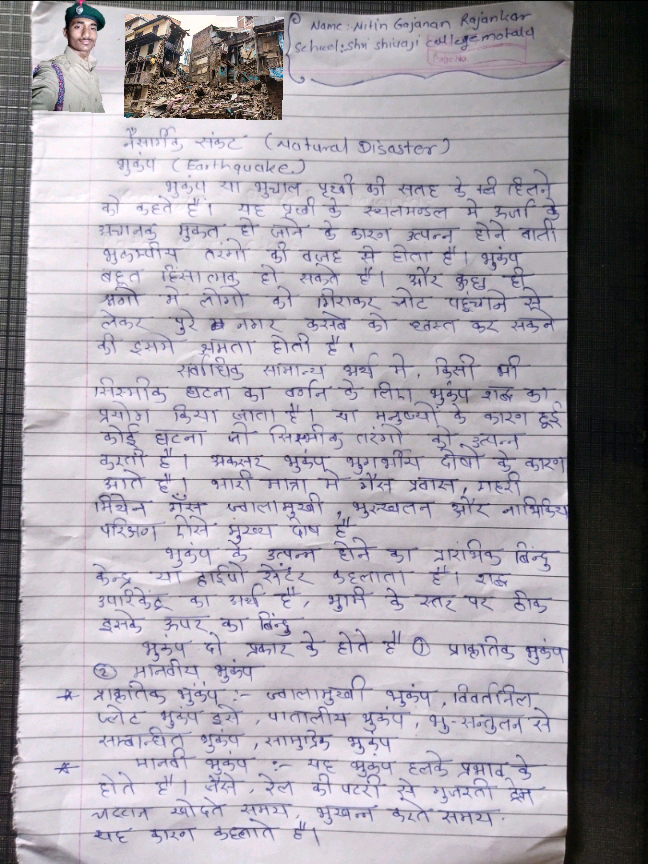 Name: Nitin Gajanan Rajankar
School: Shri Shivaji College motala
नैसर्गिक संकट (Natural Disaster)
भुकंप (Earthquake)
भुकंप या भुचाल पृथ्वी की सतह के हिलने
को कहते है। यह पृथ्वी के स्थलमण्डल मे ऊर्जा के
अचानक मुक्त हो जाने के कारण उत्पन्न होने वाली
भुकम्पीय तरंगो की वजह से होता है। भुकंप
बहुत हिंसात्मक हो सकते है। और कुछ ही
क्षणो मे लोगो को गिराकर चोट पहचाने से
लेकर पुरे नगर कसबे को ध्वस्त कर सकने
की इसमे क्षमता होती है।
सर्वाधिक सामान्य अर्थ मे, किसी भी
सिस्मीक घटना का वर्णन के लिए भुकंप शब्द का
प्रयोग किया जाता है। या मनुष्यों के कारण हुई
कोई घटना जो सिस्मीक तरंगो को उत्पन्न
करती है। अकसर भुकंप भुगर्भीय दोषो के कारण
आते है। भारी मात्रा मे गैस प्रवास, गहरी
मिथेन गैंस ज्वालामुखी, भुस्खलन और नाभिकिय
परिक्षण ऐसे मुख्य दोष है
भुकंप के उत्पन्न होने का प्रारंभिक बिंन्दु
केन्द्र या हाईपो सेंटर कहलाता है। शब्द
उपरिकेंद्र का अर्थ है, भुमी के स्तर पर ठीक
इसके ऊपर का बिंन्दु
भुकंप दो प्रकार के होते है ① प्राकृतिक भुकंप
② मानवीय भुकंप
* प्राकृतिक भुकंप :- ज्वालामुखी भुकंप, विवर्तनिल
प्लेट भुकंप इसे, पातालीय भुकंप, भु-सन्तुलन से
सम्बन्धित भुकंप, सामुद्रिक भुकंप
* मानवी भुकंप :- यह भुकंप हलके प्रभाव के
होते है। जैसे, रेल की पटरी से गुजरती ट्रेन
चट्टान खोदते समय, भुखन्न करते समय.
यह कारण कहलाते है।